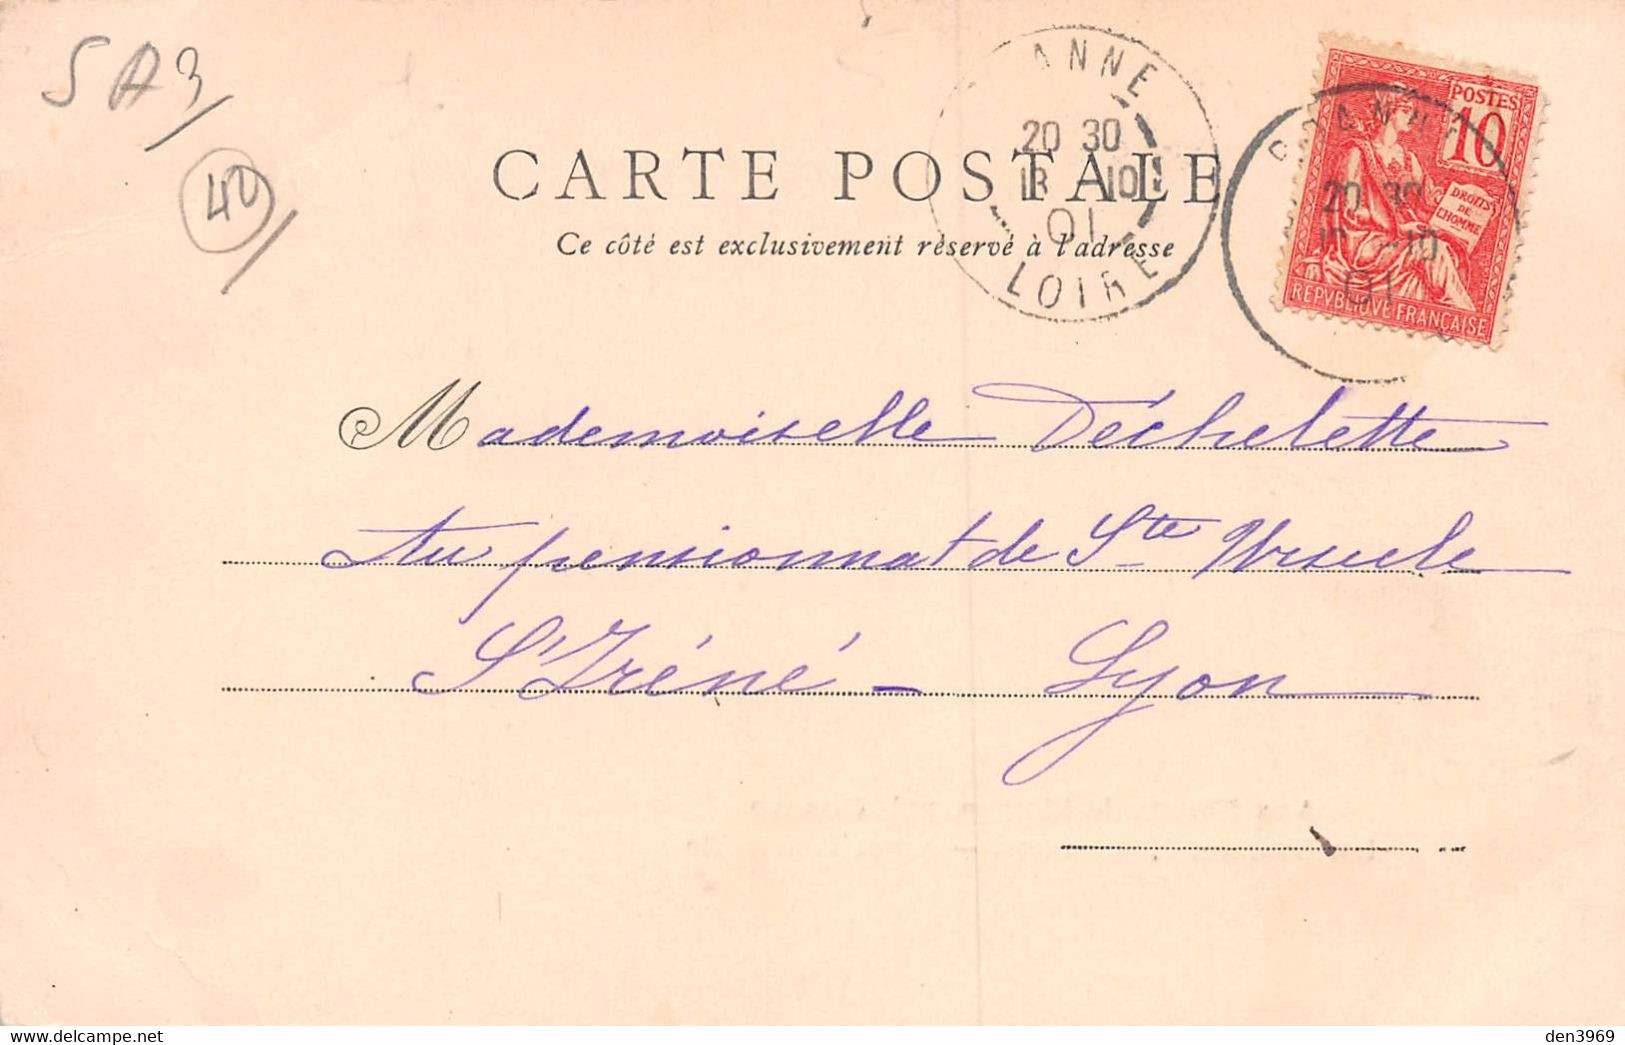 5 A3
40
ANNE
20 30
13 10
01
LOIRE
POSTES
10
DROITS
DE
L'HOMME
20 30
10
01
REPVBLIQVE FRANÇAISE
CARTE POSTALE
Ce côté est exclusivement réservé à l'adresse
Mademoiselle Déchelette
Au pensionnat de Ste Ursule
St Iréné - Lyon
den3969